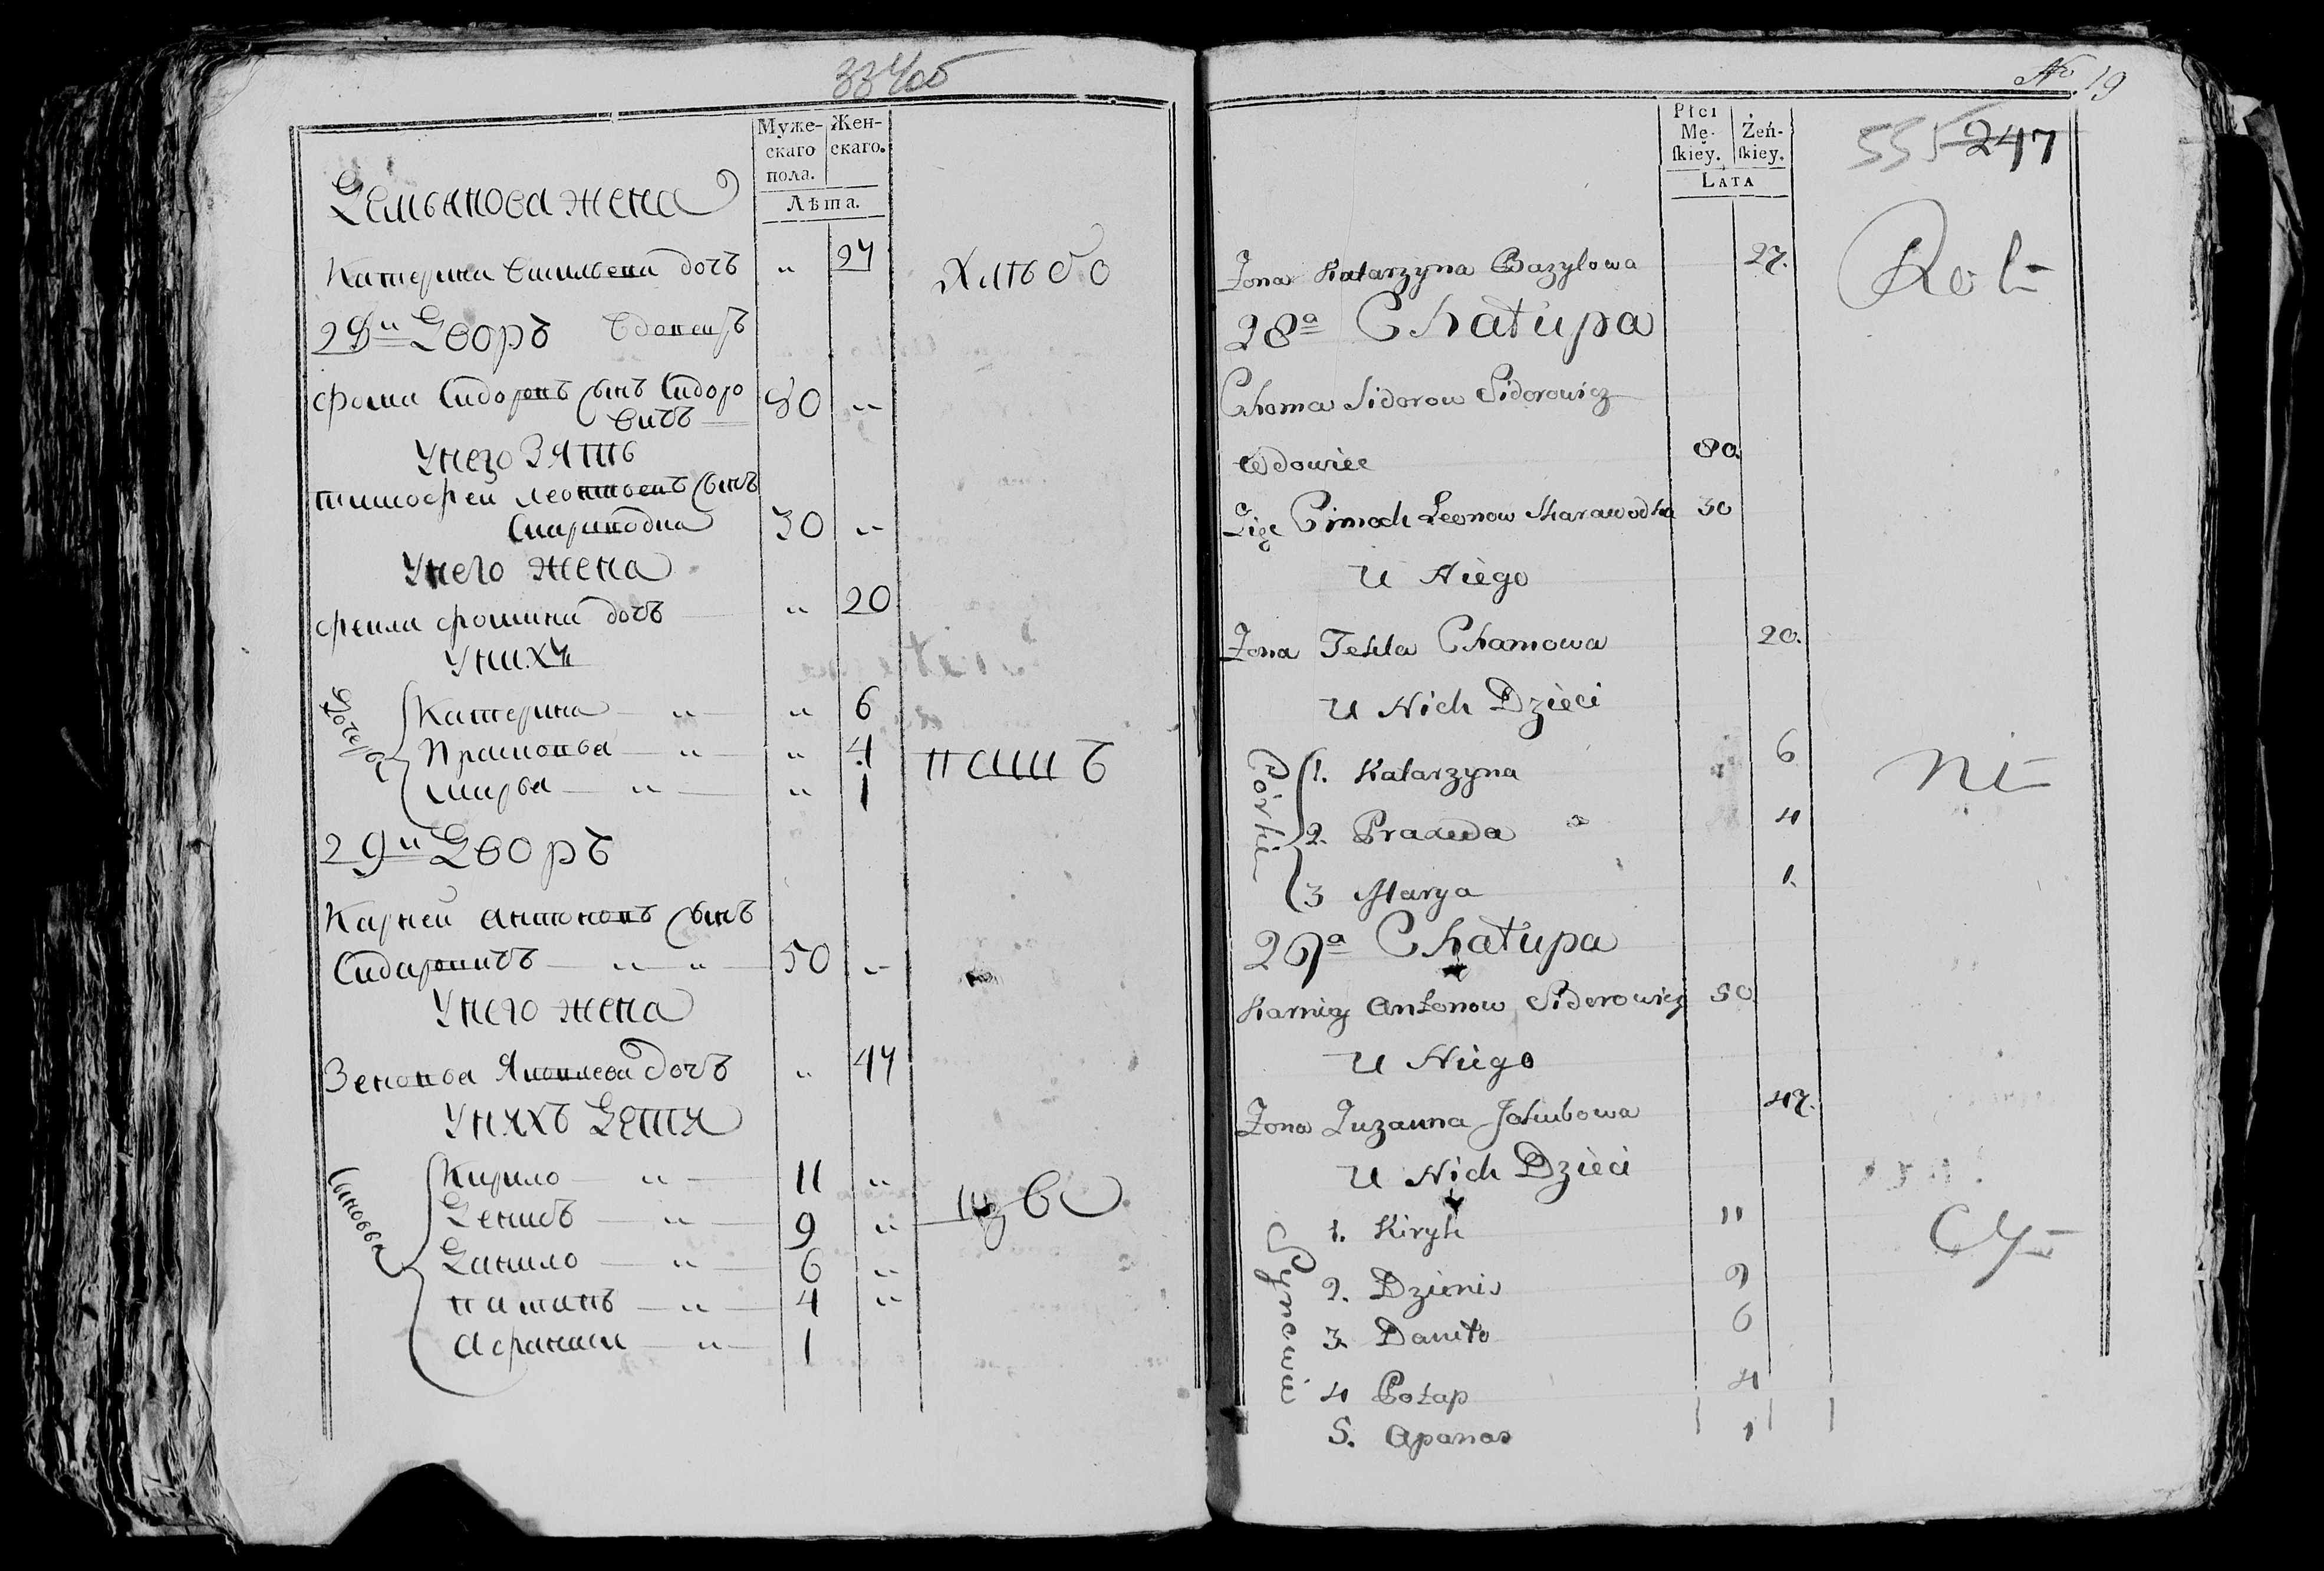 334об
Муже-
скаго
пола.
Жен-
скаго.
Лѣта.
Демьянова жена
Катерина Васильева дочъ " 27
Хлѣбо
28й Дворъ Вдовецъ
Фома Сидоровъ сынъ Сидоро
вичъ 80 "
У него Зять
Тимофей Леонтьевъ сынъ
30 "
У него жена
Фекла Фомина дочъ " 20
У них
Дочеры
Катерина " " 6
Прасковья " " 4
Марья " " 1
паш ъ
29й Дворъ
Карней Антоновъ сынъ
Сидаровичъ " " 50 "
У него жена
Зеновья Яковлева дочъ " 47
У нихъ Дети
Синовья
Кирило " 11 "
Денисъ " 9 "
Данило " 6 "
Патапъ " 4 "
Афанаси " 1
No. 19
Płci
Mę-
ſkiey.
Żeń-
ſkiey.
Lata
555 247
Żona Katarzyna Bazylowa 27.
Rol-
28a Chałupa
Choma Sidorow Sidorowicz
Wdowiec 80
Zięć Cimoch Leonow Skarawodka 30
U Niego
Żona Tekla Chamowa 20.
U Nich Dzieci
Córki
1. Katarzyna 6
2. Praxeda 4
3 Marya 1.
ni-
29a Chałupa
Karniey Antonow Siderowicz 50
U Niego
Żona Zuzanna Jakubowa 47.
U Nich Dzieci
Synowie
1. Kiryk 11
2. Dzienis 9
3. Daniło 6
4 Potap 4
5. Apanas 1
cy-